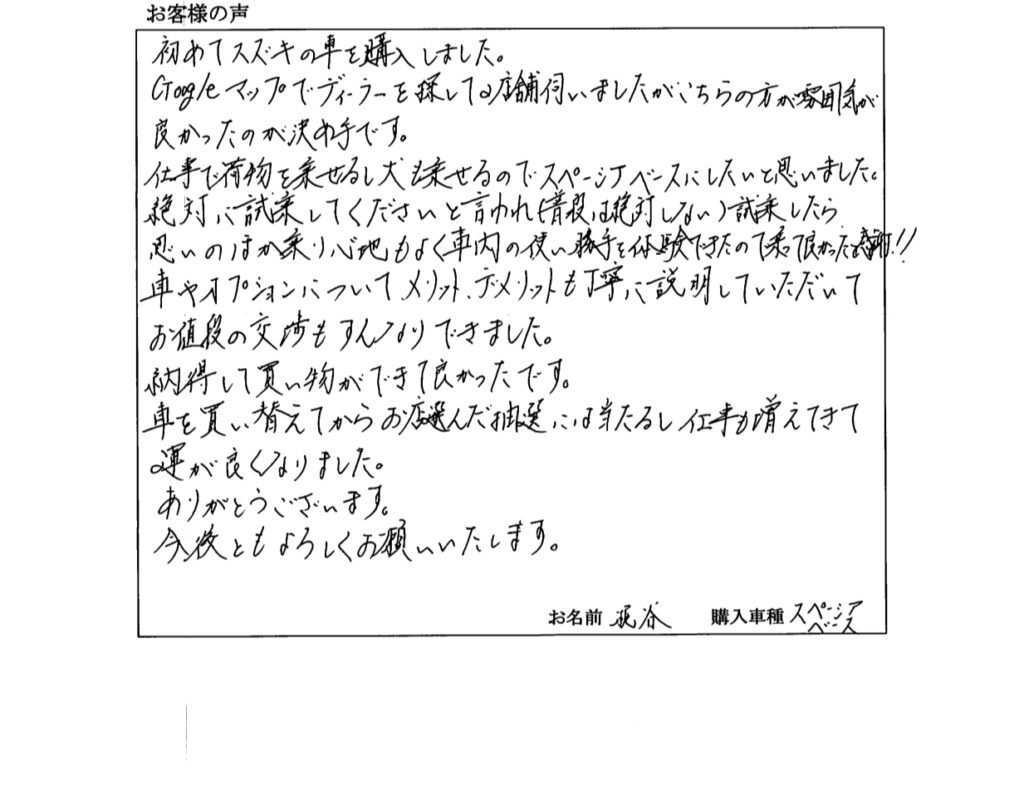 お客様の声
初めてスズキの車を購入しました。
Googleマップでディーラーを探して2店舗伺いましたがこちらの方が雰囲気が
良かったのが決め手です。
仕事で荷物を乗せるし犬も乗せるのでスペーシアベースにしたいと思いました。
絶対に試乗してくださいと言われ(普段は絶対しない)試乗したら
思いのほか乗り心地もよく車内の使い勝手を体験できたので乗って良かった!!
車やオプションについてメリット、デメリットも丁寧に説明していただいて
お値段の交渉もすんなりできました。
納得して買い物ができて良かったです。
車を買い替えてからお店選んだ抽選には当たるし仕事も増えてきて
運が良くなりました。
ありがとうございます。
今後ともよろしくお願いいたします。
お名前 谷 購入車種 スペーシア
ベース